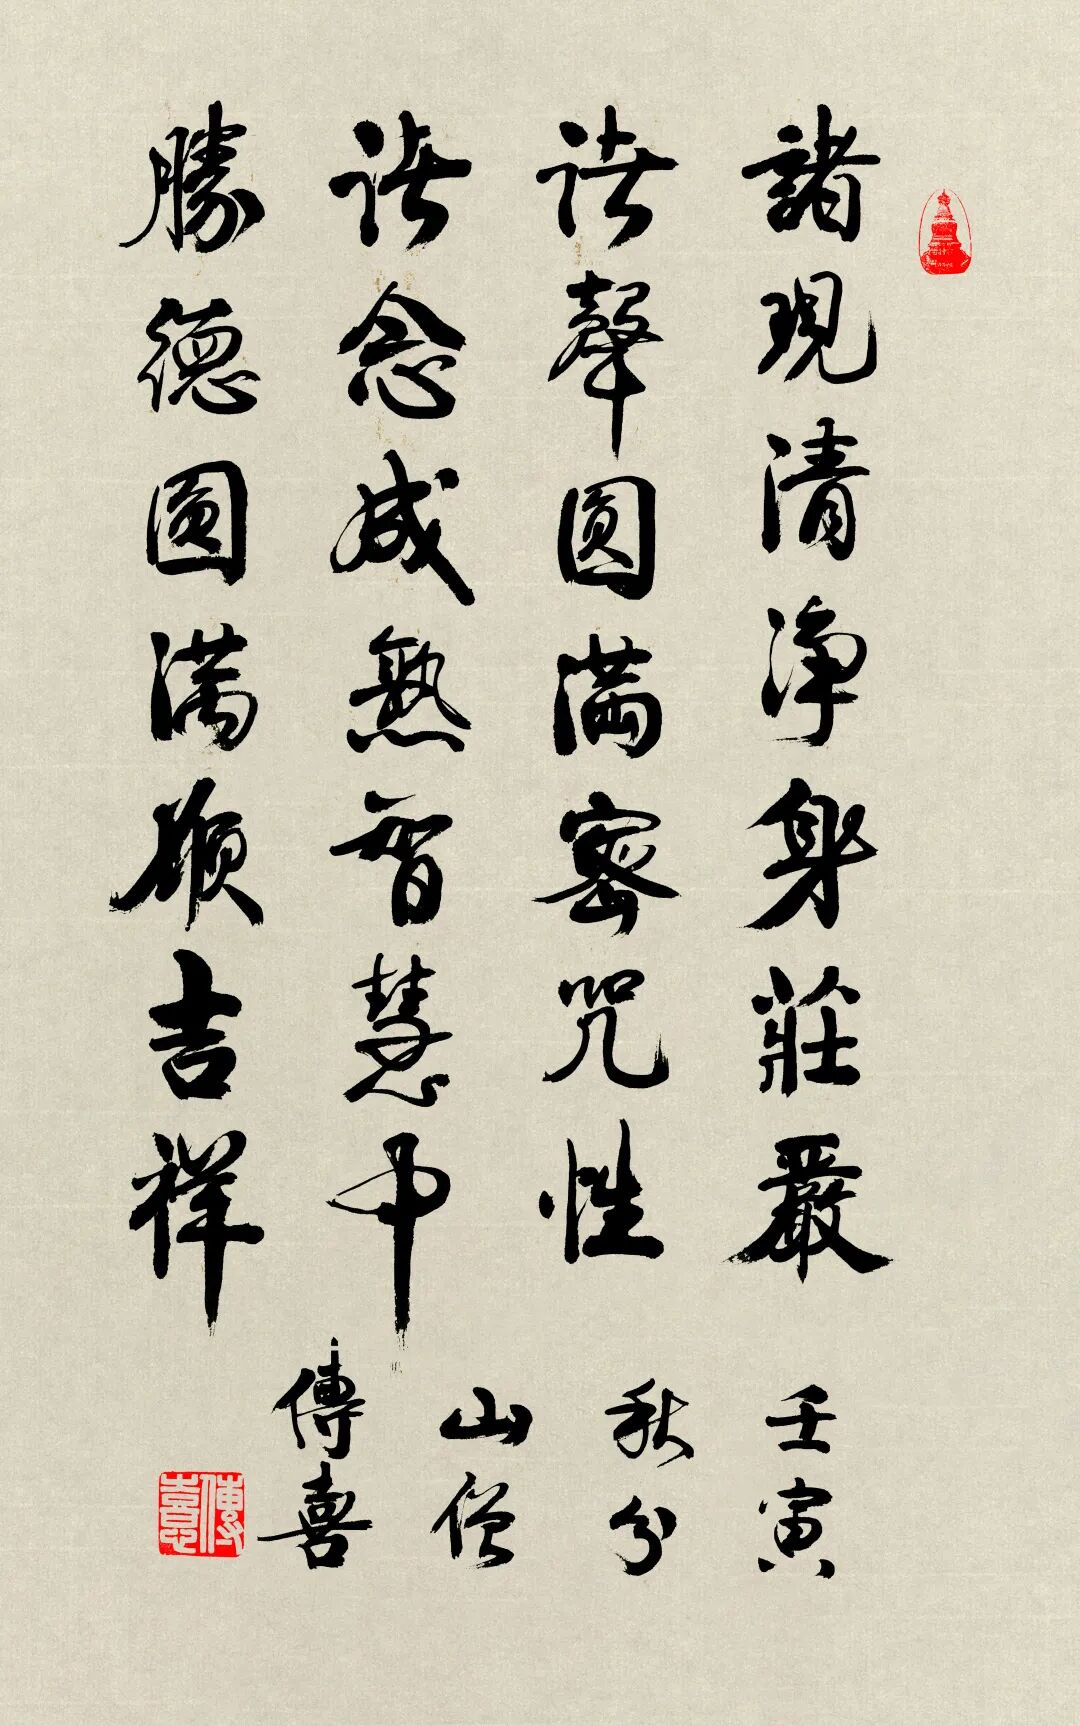 諸現清淨身莊嚴
諸聲圓滿密咒性
諸念成熟智慧中
勝德圓滿願吉祥
壬寅
秋分
山僧
傳喜
傳喜